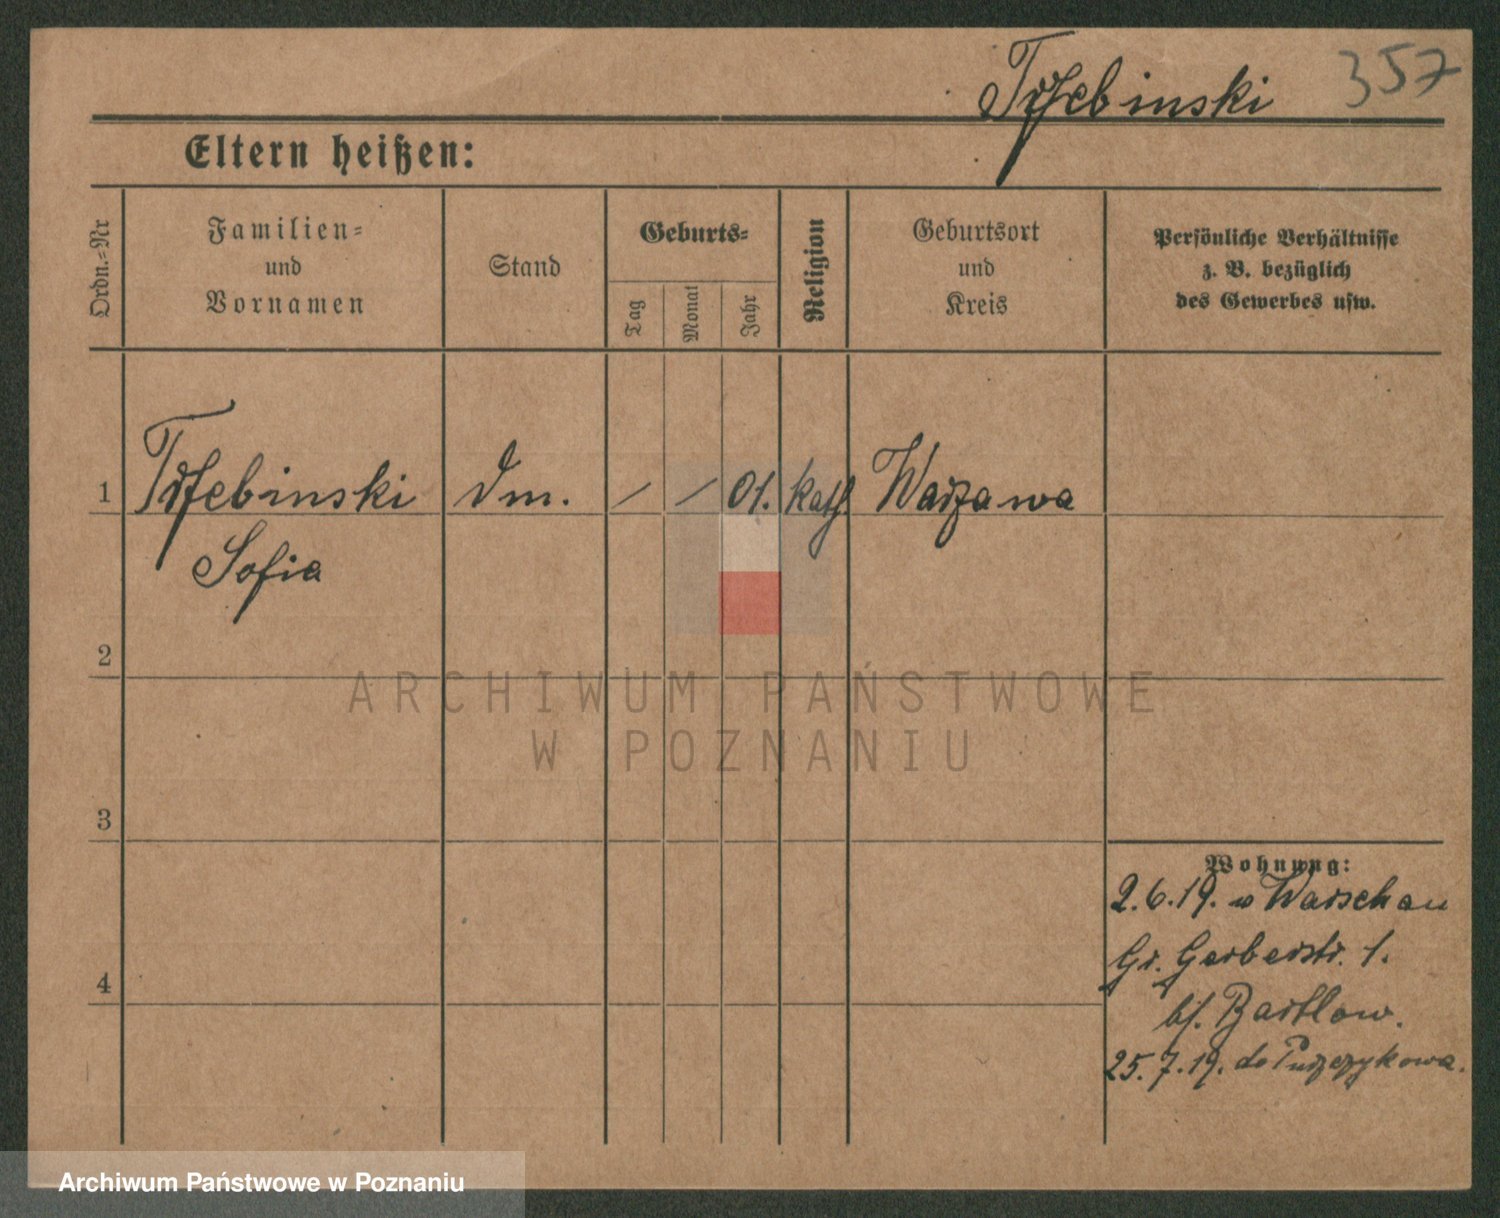 Trzebinski 357
Eltern heißen:
Ordn.-Nr
Familien-
und
Vornamen
Stand
Geburts-
Tag
Monat
Jahr
Religion
Geburtsort
und
Kreis
Persönliche Verhältnisse
z. B. bezüglich
des Gewerbes usw.
1 Trzebinski Dm. / / 01. kath. Warzawa
Sofia
2
3
4
Wohnung:
2.6.19. w Warschau
Gr. Gerberstr. 1.
bf. Bartlow.
25.7.19. do
ARCHIWUM PAŃSTWOWE
W POZNANIU
Archiwum Państwowe w Poznaniu